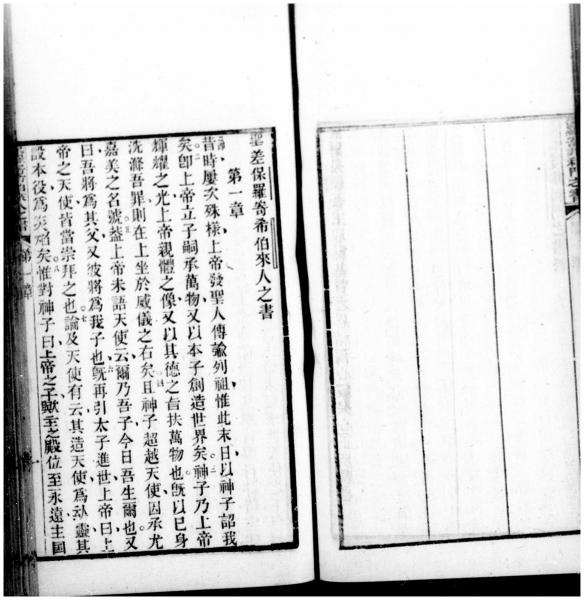 聖差保羅寄希伯來人之書
第一章
昔時屢次殊樣上帝發聖人傳諭列祖惟此末日以神子詔我
矣卽上帝立子嗣承萬物又以本子創造世界矣神子乃上帝
輝耀之光上帝親體之像又以其德之言扶萬物也旣以已身
洗滌吾罪則在上坐於威儀之右矣且神子超越天使因承尤
嘉美之名號葢上帝未語天使云爾乃吾子今日吾生爾也又
曰吾將為其父又彼將為我子也旣再引太子進世上帝曰上
帝之天使皆當崇拜之也論及天使有云其造天使為風靈其
設本役為炎焰矣惟對神子曰上帝之子歟至之殿位至永遠主國
第一章